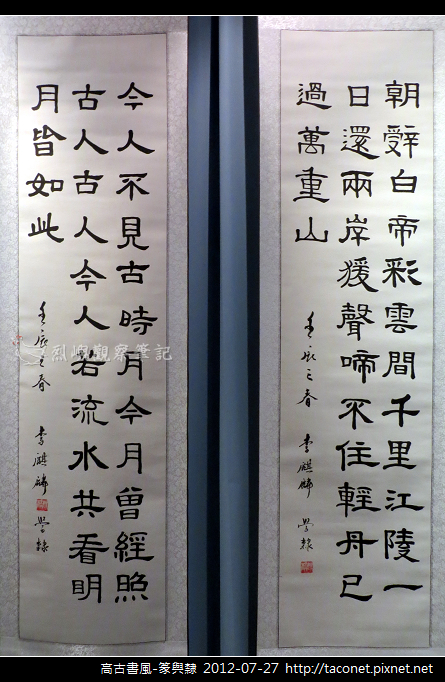 朝辤白帝彩雲間千里江陵一
日還兩岸猨聲啼不住輕舟已
過萬重山
壬辰之春 李麒麟 學隸
今人不見古時月今月曾經照
古人古人今人若流水共看明
月皆如此
壬辰之春 李麒麟 學隸
烈嶼觀察筆記
高古書風-篆與隸 2012-07-27 http://taconet.pixnet.net